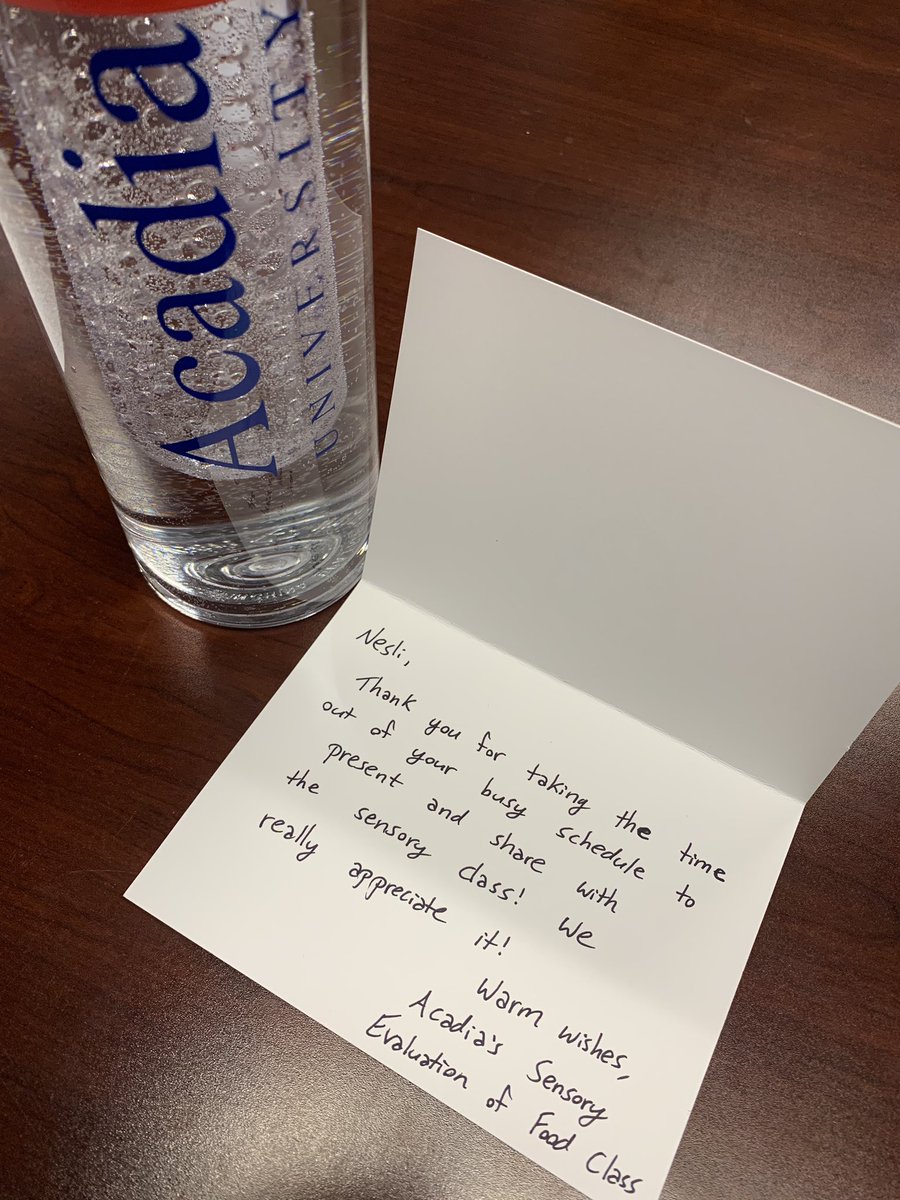 Acadia
UNIVERSITY
Nesli,
Thank you for taking the time
out of your busy schedule to
present and share with
the sensory class! We
really appreciate it!
Warm wishes,
Acadia's Sensory
Evaluation of Food Class